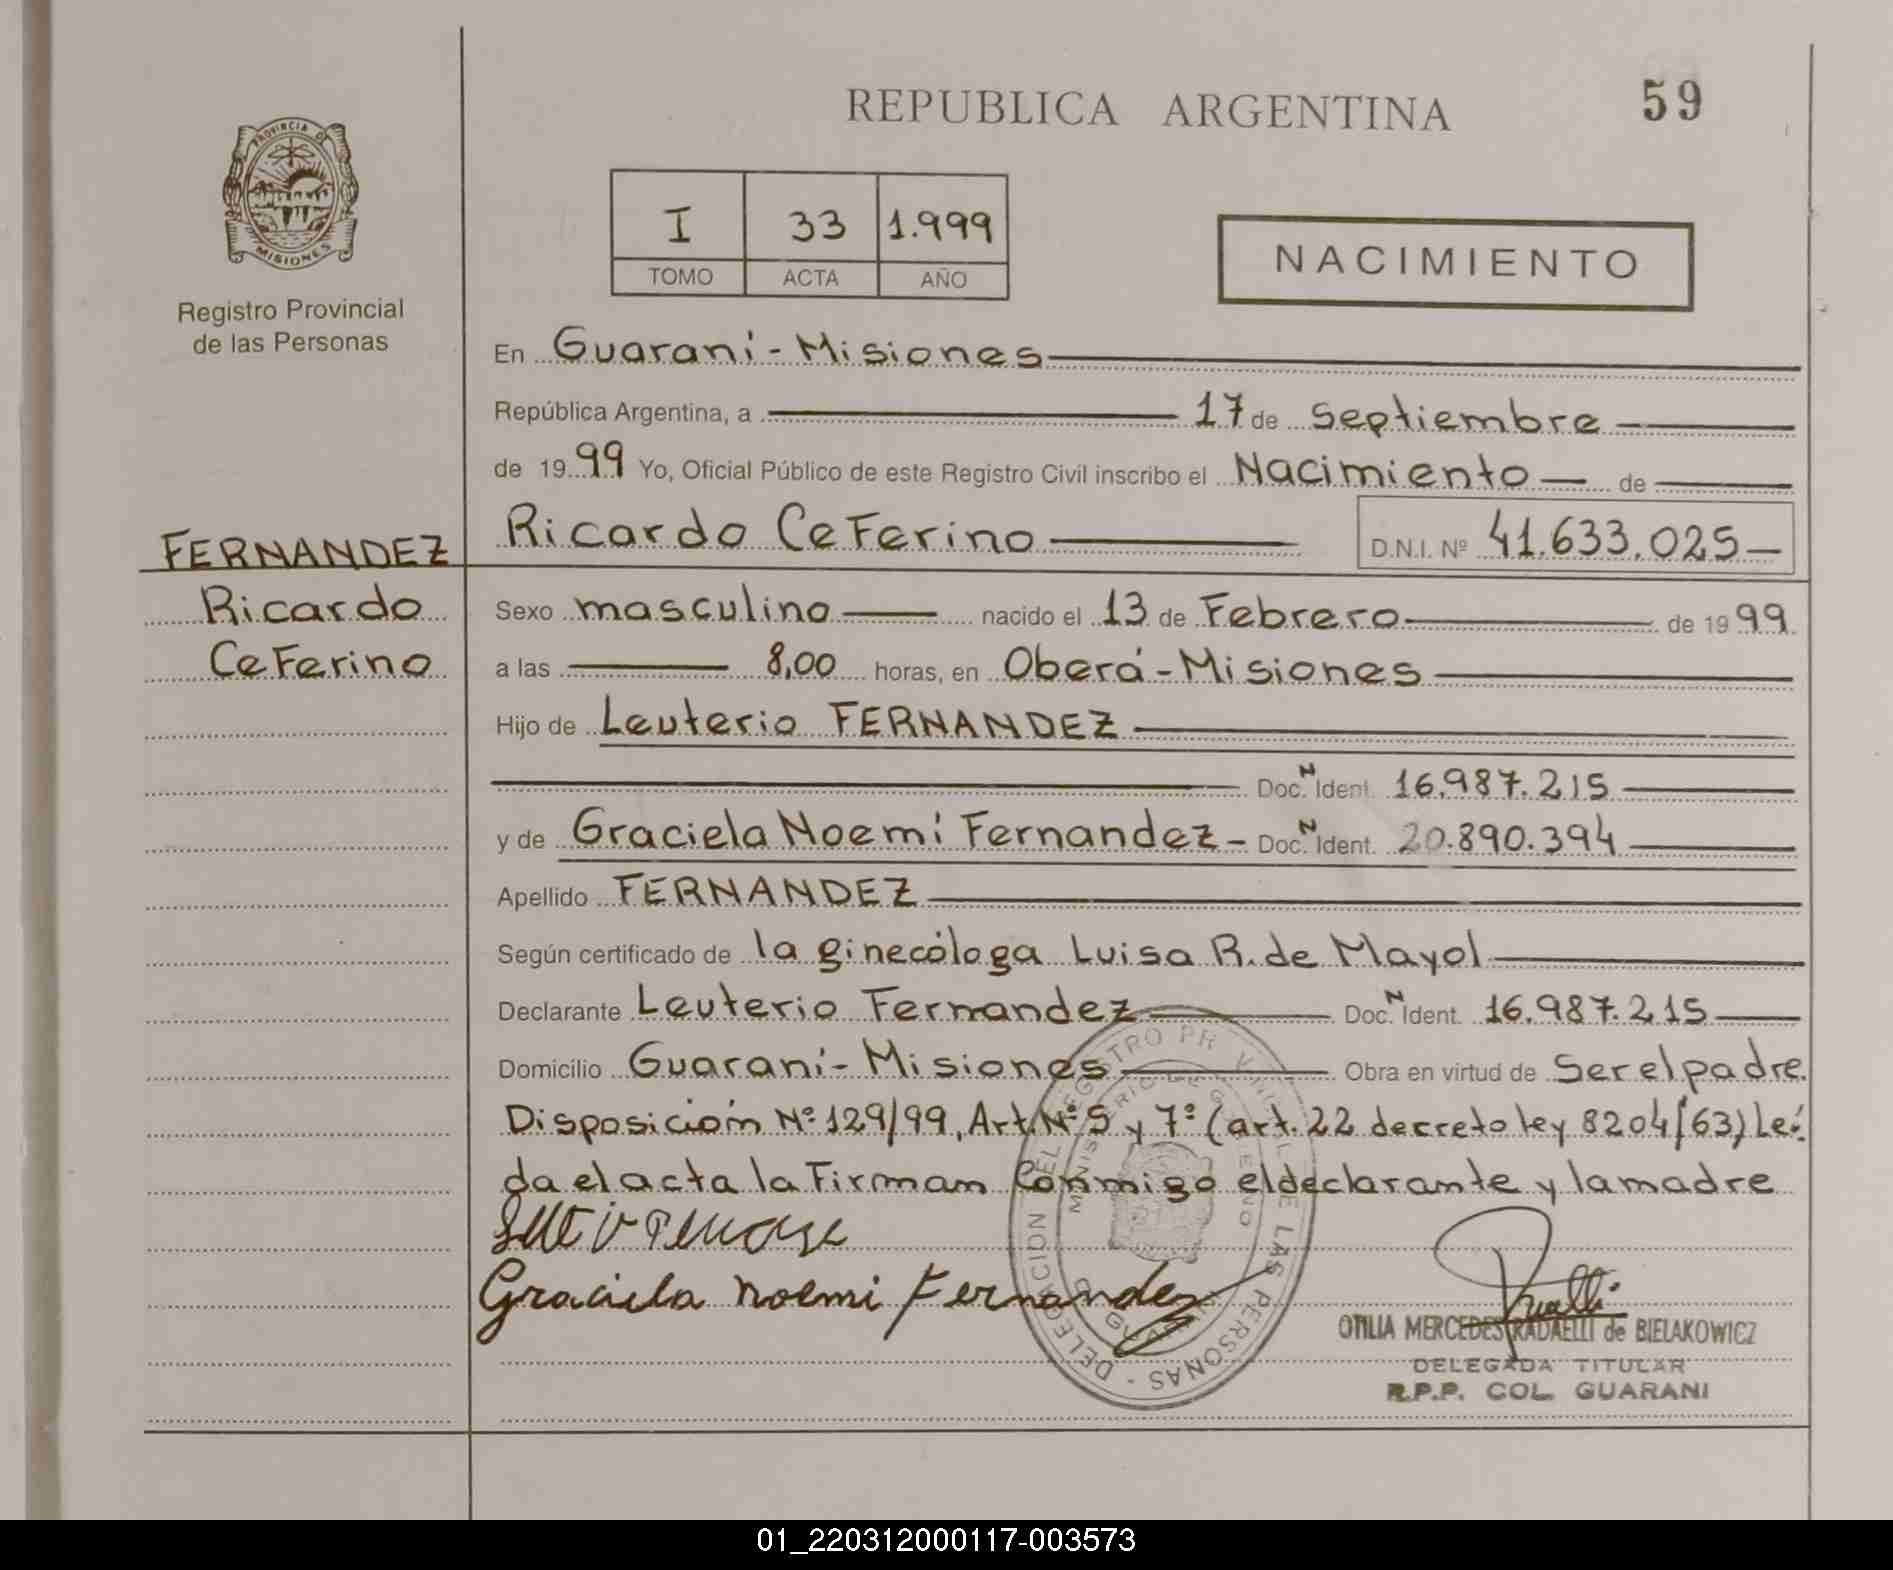 REPUBLICA ARGENTINA
59
PROVINCIA DE
MISIONES
Registro Provincial
de las Personas
I 33 1.999
TOMO ACTA AÑO
NACIMIENTO
En Guaraní - Misiones
República Argentina, a 17 de Septiembre
de 1999 Yo, Oficial Público de este Registro Civil inscribo el Nacimiento de
FERNANDEZ
Ricardo
CeFerino
Ricardo CeFerino D.N.I. Nº 41.633.025
Sexo masculino nacido el 13 de Febrero de 1999
a las 8,00 horas, en Oberá - Misiones
Hijo de Leuterio FERNANDEZ
Doc. N Ident. 16.987.215
y de Graciela Noemí Fernandez - Doc. N Ident. 20.890.394
Apellido FERNANDEZ
Según certificado de la ginecóloga Luisa R. de Mayol
Declarante Leuterio Fernandez Doc. N Ident. 16.987.215
Domicilio Guaraní - Misiones Obra en virtud de Ser el padre.
Disposición Nº 129/99, Art. Nº 5 y 7º (art. 22 decreto ley 8204/63) Leí-
da el acta la Firman Conmigo el declarante y la madre
Graciela noemi Fernandez
OTILIA MERCEDES RADAELLI de BIELAKOWICZ
DELEGADA TITULAR
R.P.P. COL. GUARANI
01_220312000117-003573